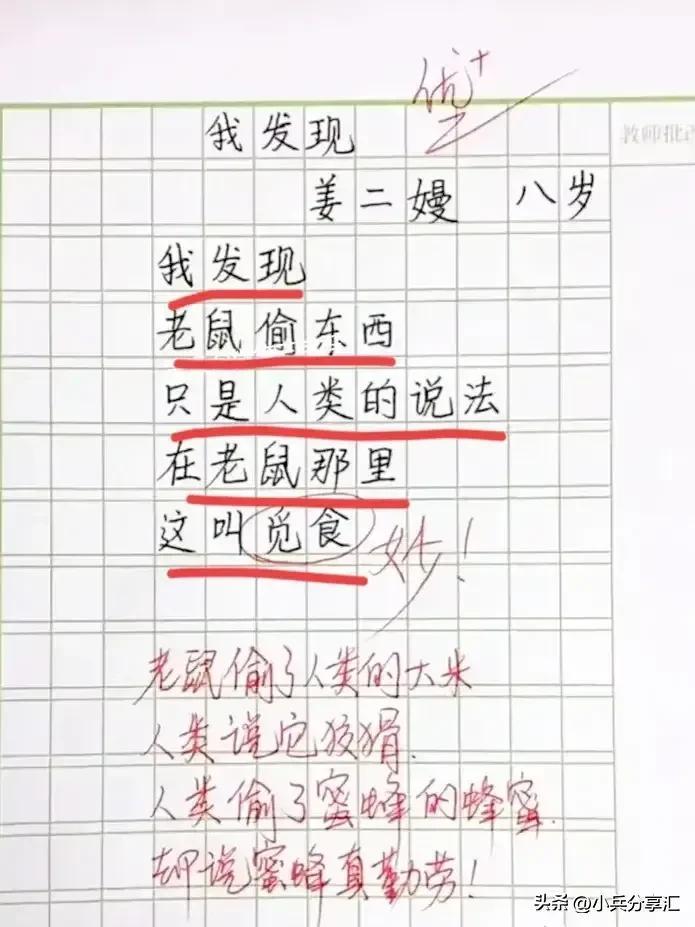 优+
我发现
教师批改
姜二嫚 八岁
我发现
老鼠偷东西
只是人类的说法
在老鼠那里
这叫觅食
妙!
老鼠偷了人类的大米
人类说它狡猾.
人类偷了蜜蜂的蜂蜜.
却说蜜蜂真勤劳!
头条 @小兵分享汇